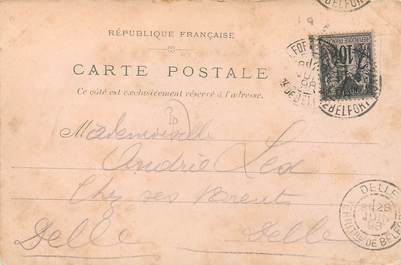 RÉPUBLIQUE FRANÇAISE
CARTE POSTALE
Ce côté est exclusivement réservé à l'adresse.
Mademoiselle
Chez ses Parents
Delle Delle
BELFORT
DELLE
28
JUIN
TERRITRE DE BELFORT